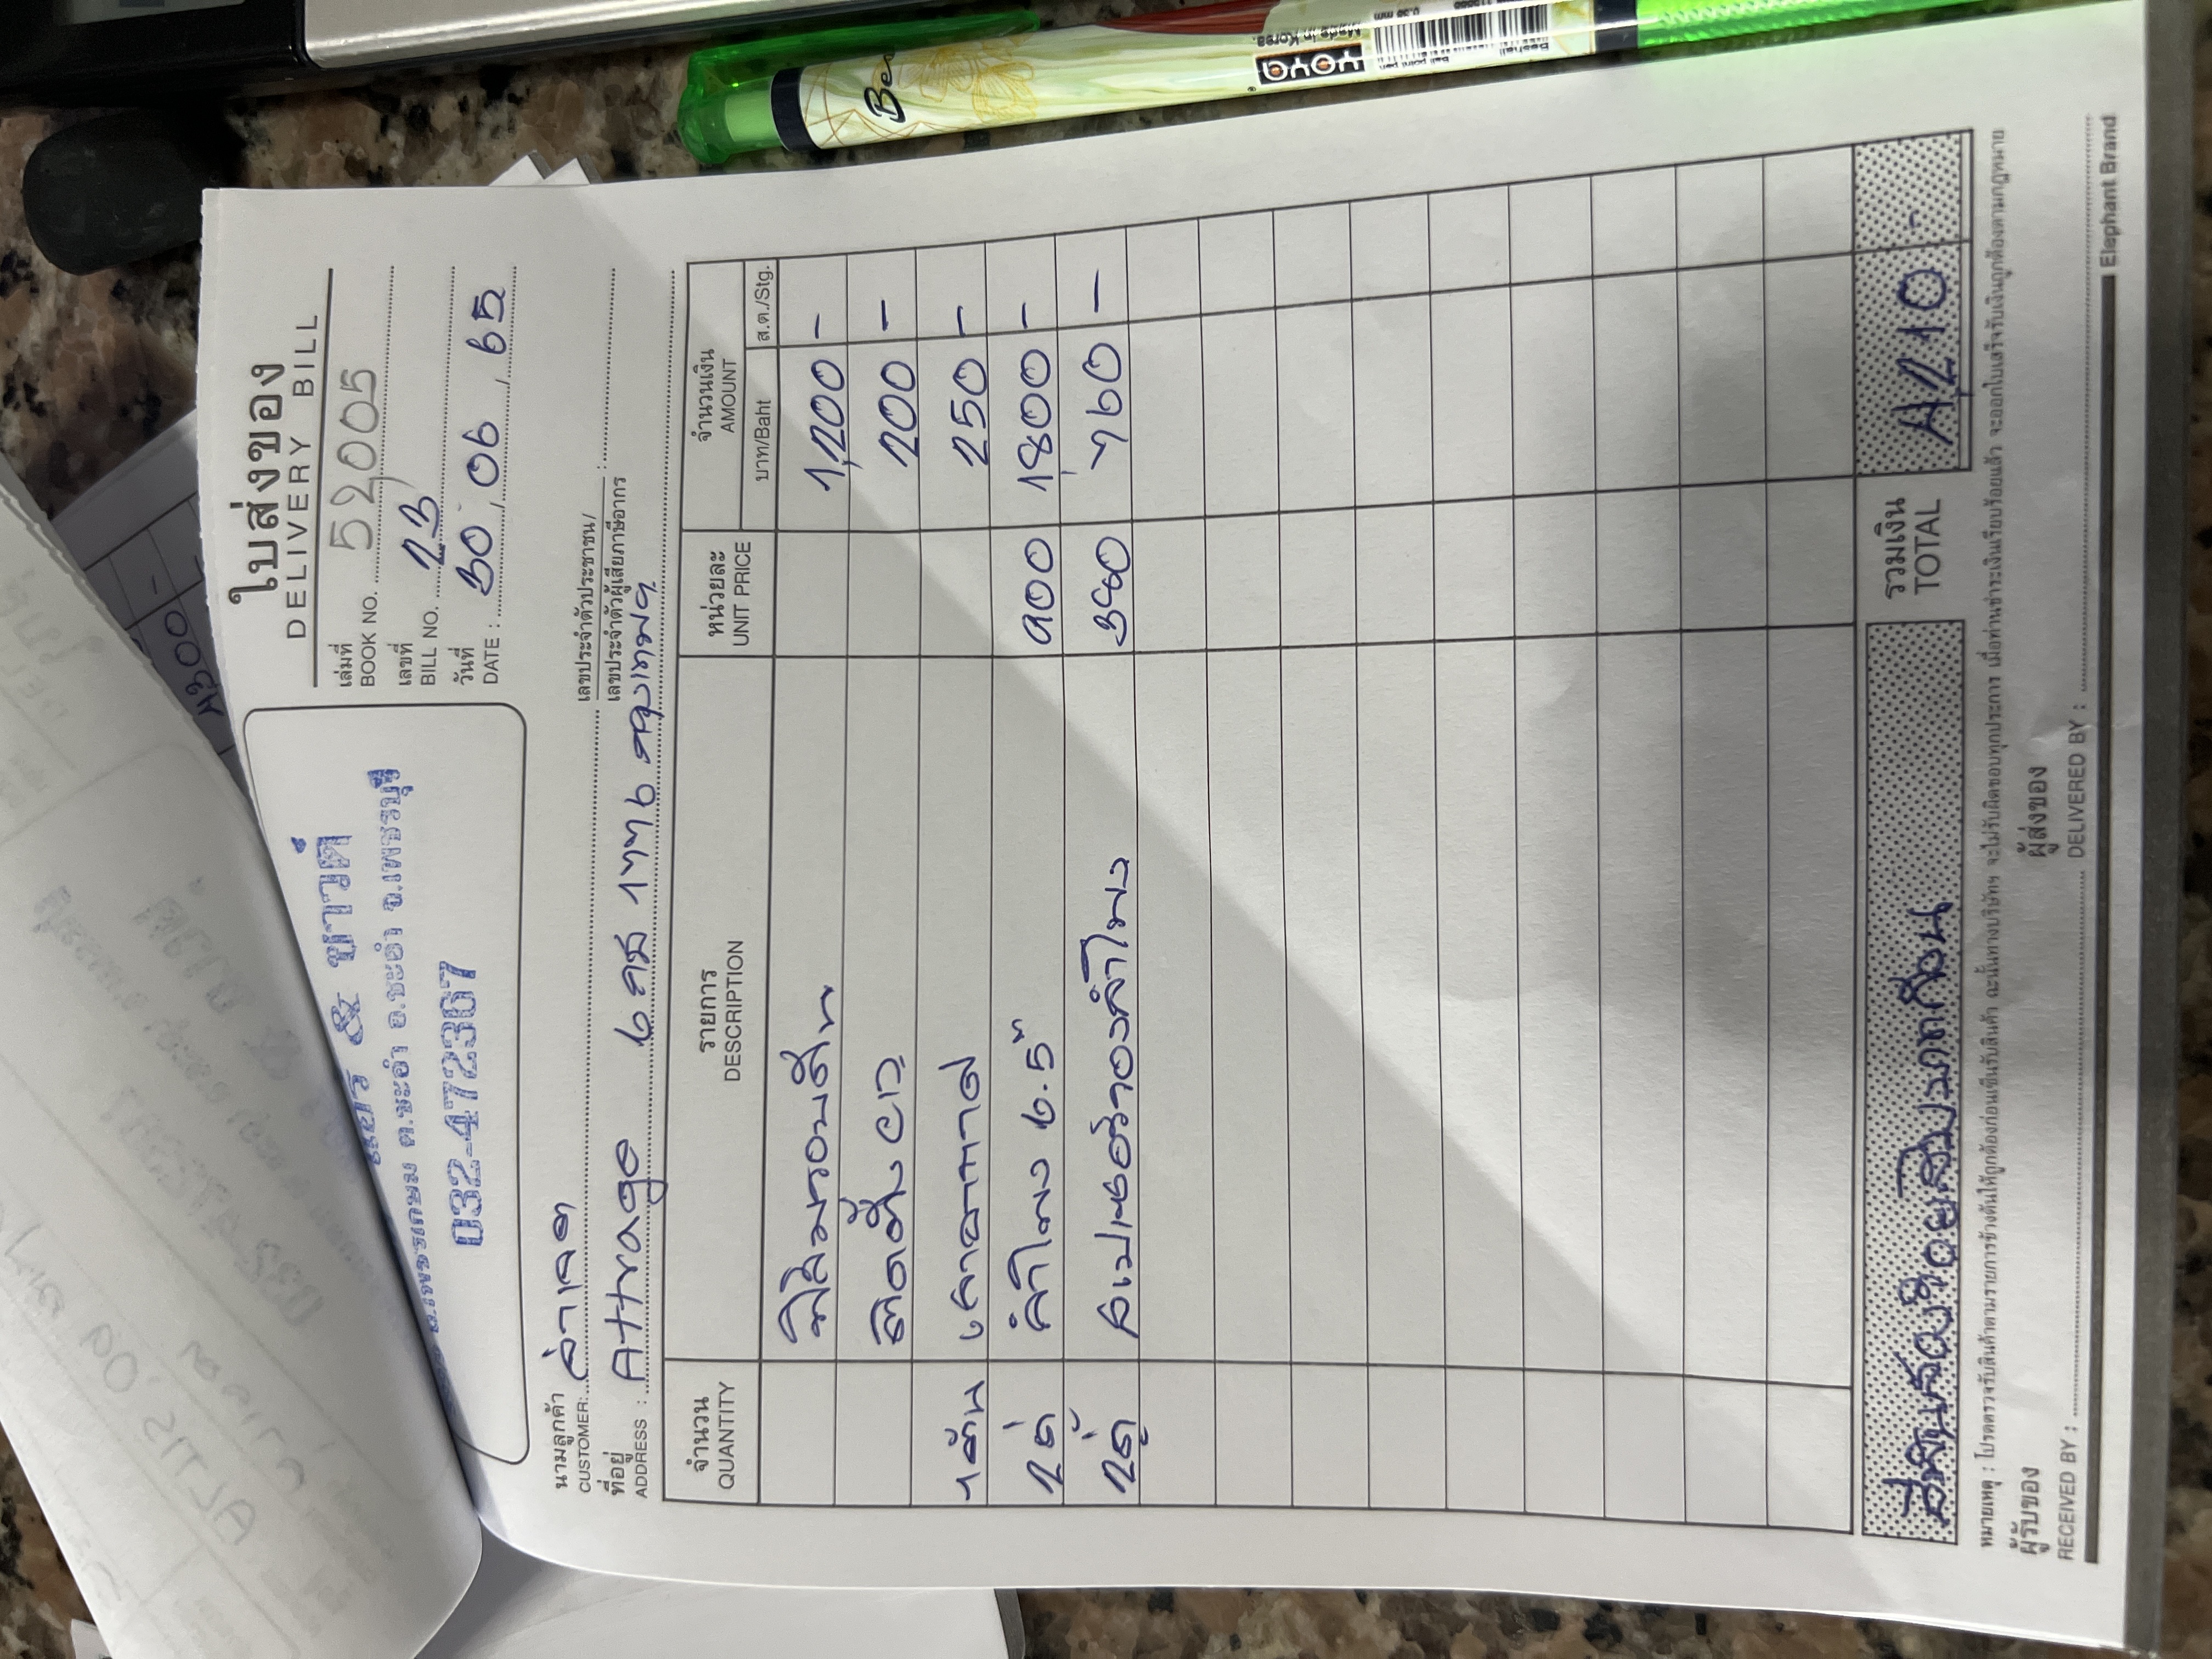 ใบส่งของ
DELIVERY BILL
& ซาวด์
ถ.เพชรเกษม ต.ชะอำ อ.ชะอำ จ.เพชรบุรี
032-472307
เล่มที่
BOOK NO. 52005
เลขที่
BILL NO. 23
วันที่
DATE : 30 / 06 / 65
นามลูกค้า
CUSTOMER:
เลขประจำตัวประชาชน/
เลขประจำตัวผู้เสียภาษีอากร :
ที่อยู่
ADDRESS : Attrage 6 กส 1776 กรุงเทพฯ
จำนวน
QUANTITY
รายการ
DESCRIPTION
หน่วยละ
UNIT PRICE
จำนวนเงิน
AMOUNT
บาท/Baht ส.ต./Stg.
ฟิล์มรอบคัน 1,200 -
200 -
1 ต้น เสาอากาศ 250 -
2 คู่ ลำโพง 6.5" 900 1,800 -
2 คู่ สเปเซอร์รองลำโพง 380 760 -
สี่พันสองร้อยสิบบาทถ้วน
รวมเงิน
TOTAL
4,210 -
หมายเหตุ : โปรดตรวจรับสินค้าตามรายการข้างต้นให้ถูกต้องก่อนเซ็นรับสินค้า ฉะนั้นทางบริษัทฯ จะไม่รับผิดชอบทุกประการ เมื่อท่านชำระเงินเรียบร้อยแล้ว จะออกใบเสร็จรับเงินถูกต้องตามกฎหมาย
ผู้รับของ
RECEIVED BY :
ผู้ส่งของ
DELIVERED BY :
Elephant Brand
YOYA
Made in Korea
Ball point pen
0.38 mm